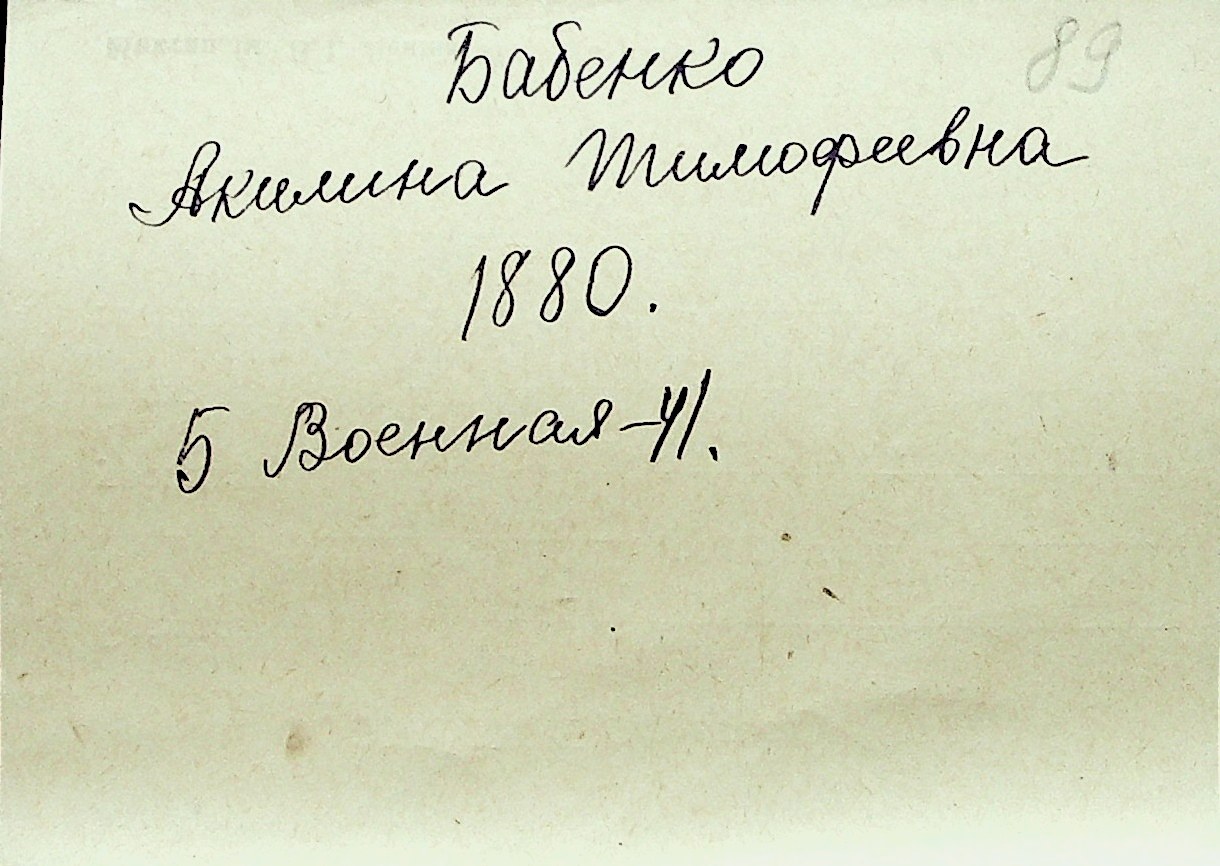 Бабенко 89
Акилина Тимофеевна
1880.
5 Военная-41.